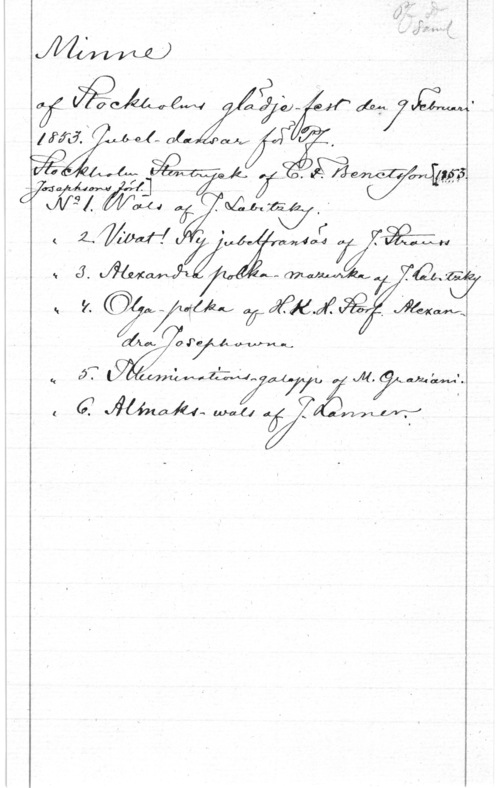 Pf. & Saml
Minne
af Stockholms glädje-fest den 9 Februari
1853. Jubel-dansar för Pf.
Stockholm Stentryck af C. F. Benctsson [1853.
Josephsons förl.]
Nº 1. Wals af J. Labitzky.
" 2. Vivat! Ny jubelfransäs af J. Strauss
" 3. Alexandra polka-mazurka af J. Labitzky
" 4. Olga-polka af H. K. H. Storf. Alexan-
dra Josephowna.
" 5. Illuminations-galopp af M. Graziani.
" 6. Almaks-wals af J. Lanner.